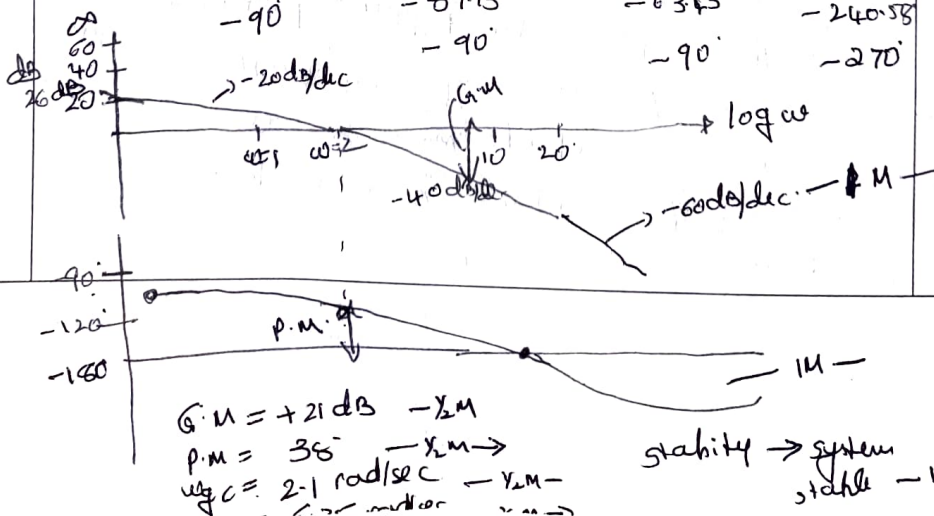 ∞ -90° - 240.58°
60 - 90° -90° -270°
dB 40
26dB 20 → -20dB/dec
G.M
→ log ω
ω=1 ω=2 10 20
-40dB/dec
→ -60dB/dec. — M —
-90°
-120°
P.M.
-180
— 1M —
G.M = +21 dB - ½M
P.M = 38° — ½M →
ωgc = 2.1 rad/sec - ½M -
stabity → system
stable -